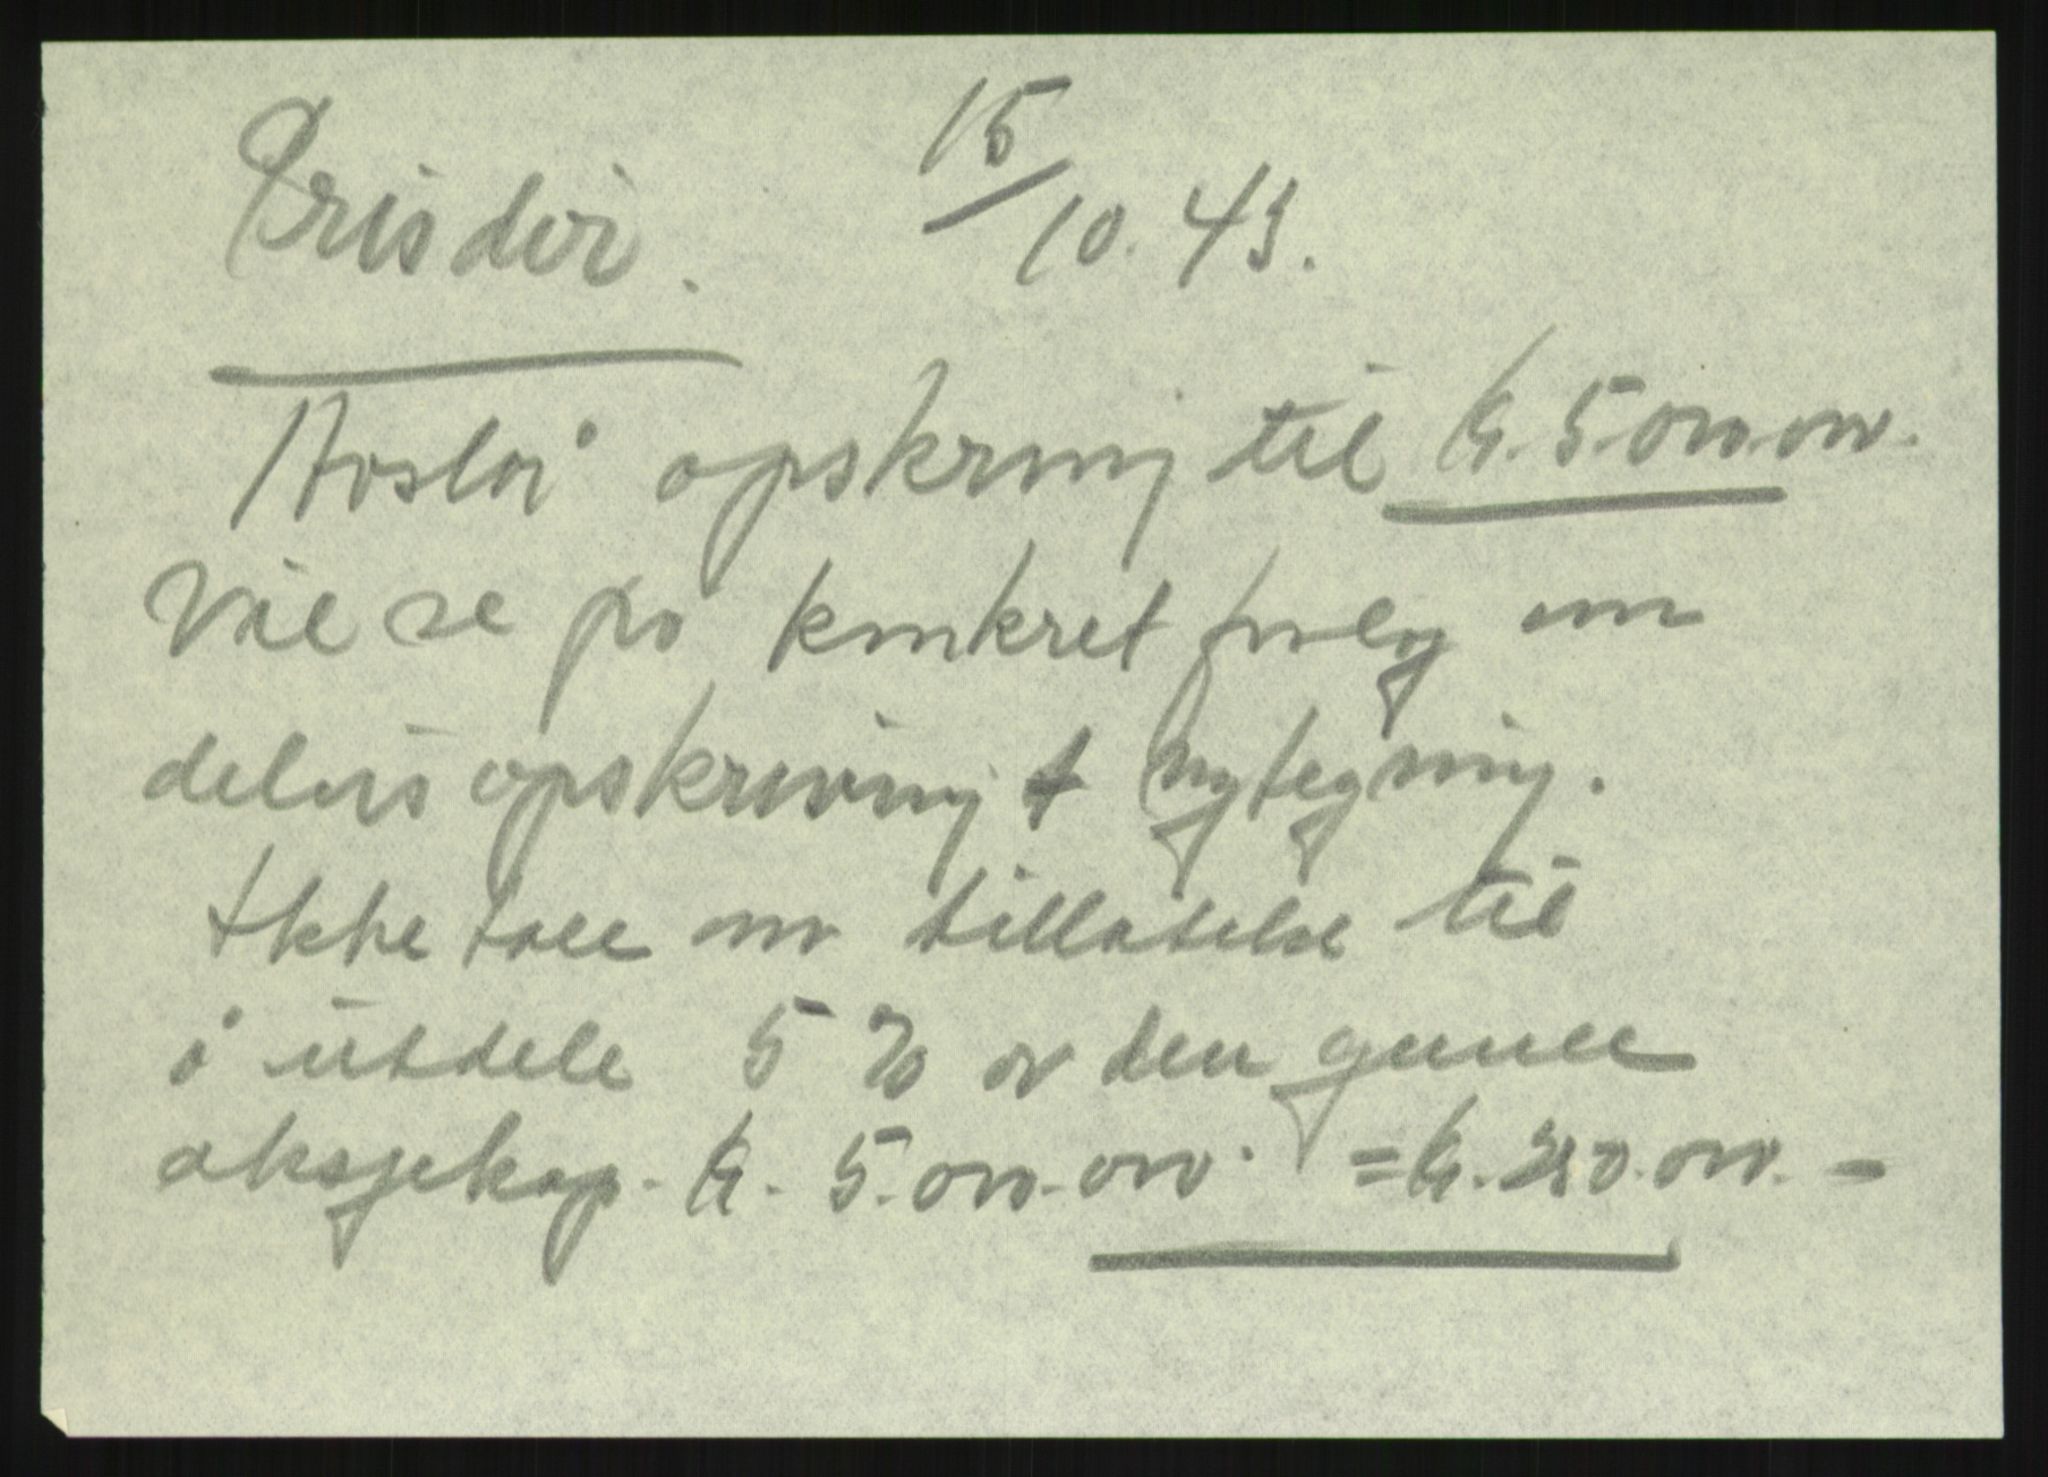 Prisdir. 15/10. 43.
Avslår opskrivning til Kr. 5.000.000.
Vil se på konkret forslag om
delvis opskrivning + nytegning.
Ikke tale om tillatelse til
å utdele 5 % av den gamle
aksjekap. Kr. 5.000.000. = Kr. 250.000. -